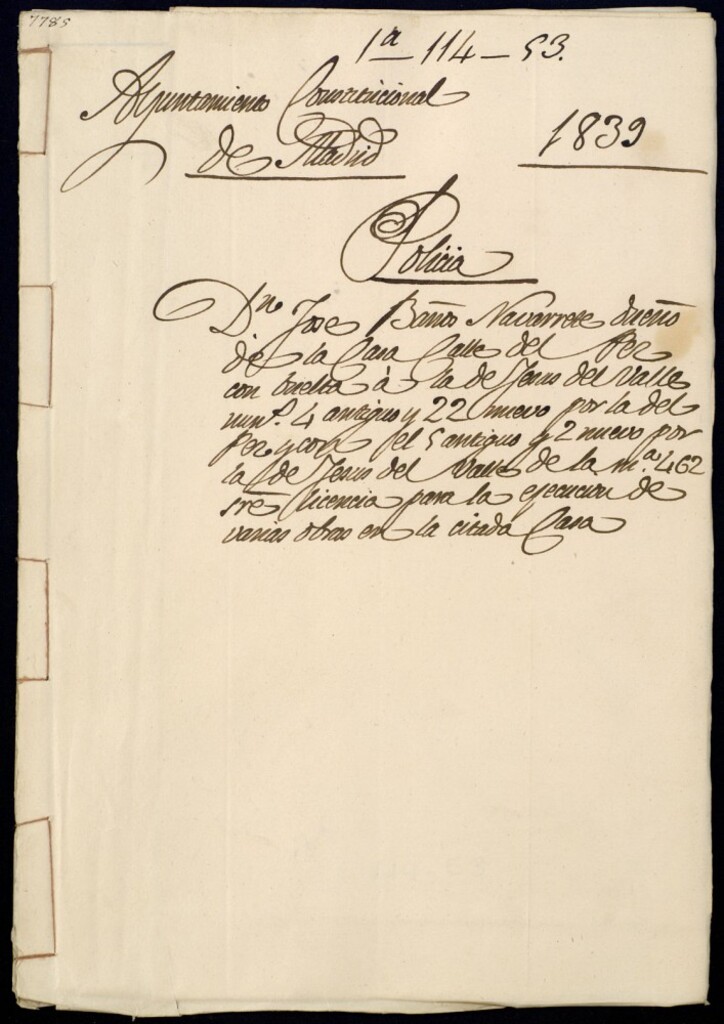 7785
1ª 114-53.
Ayuntamiento Constitucional
de Madrid
1839
Policia
Dn. Jose Baño Navarrete dueño
de la Casa Calle del Pez
con buelta à la de Jesus del Valle
num.º 4 antiguo y 22 nuevo por la del
Pez y con el 5 antiguo y 2 nuevo por
la de Jesus del Valle de la m.ª 462
sre licencia para la ejecucion de
varias obras en la citada Casa